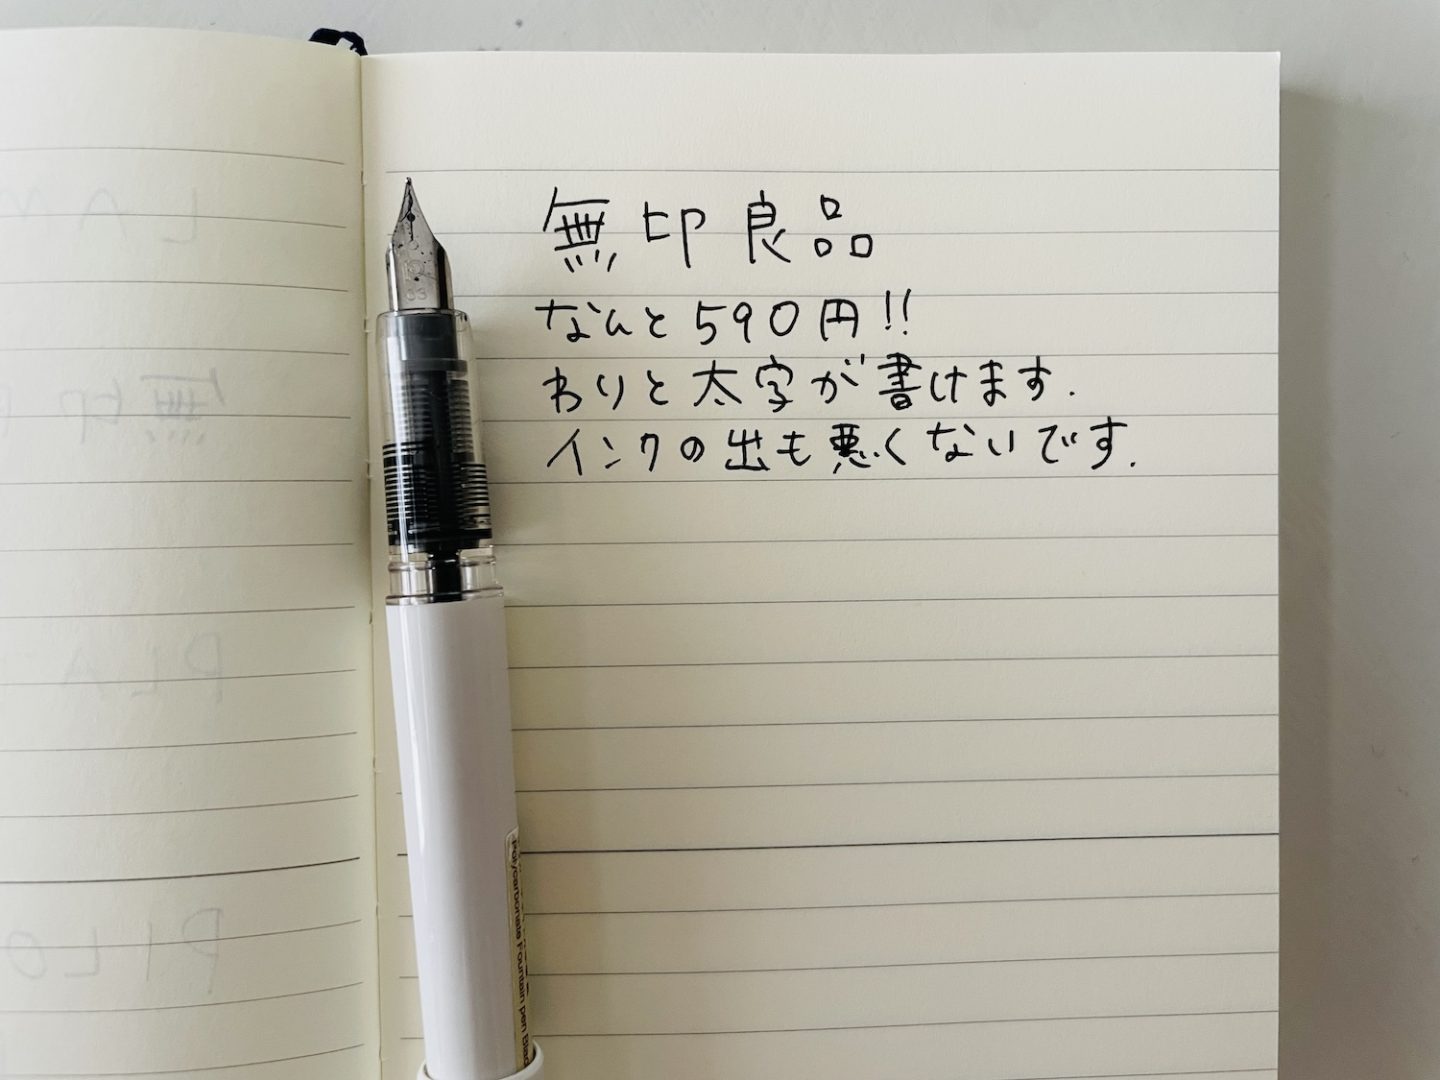 無印良品
なんと590円!!
わりと太字が書けます.
インクの出も悪くないです.
Polycarbonate Fountain pen Blac
LAM
無印
PLA
PILO